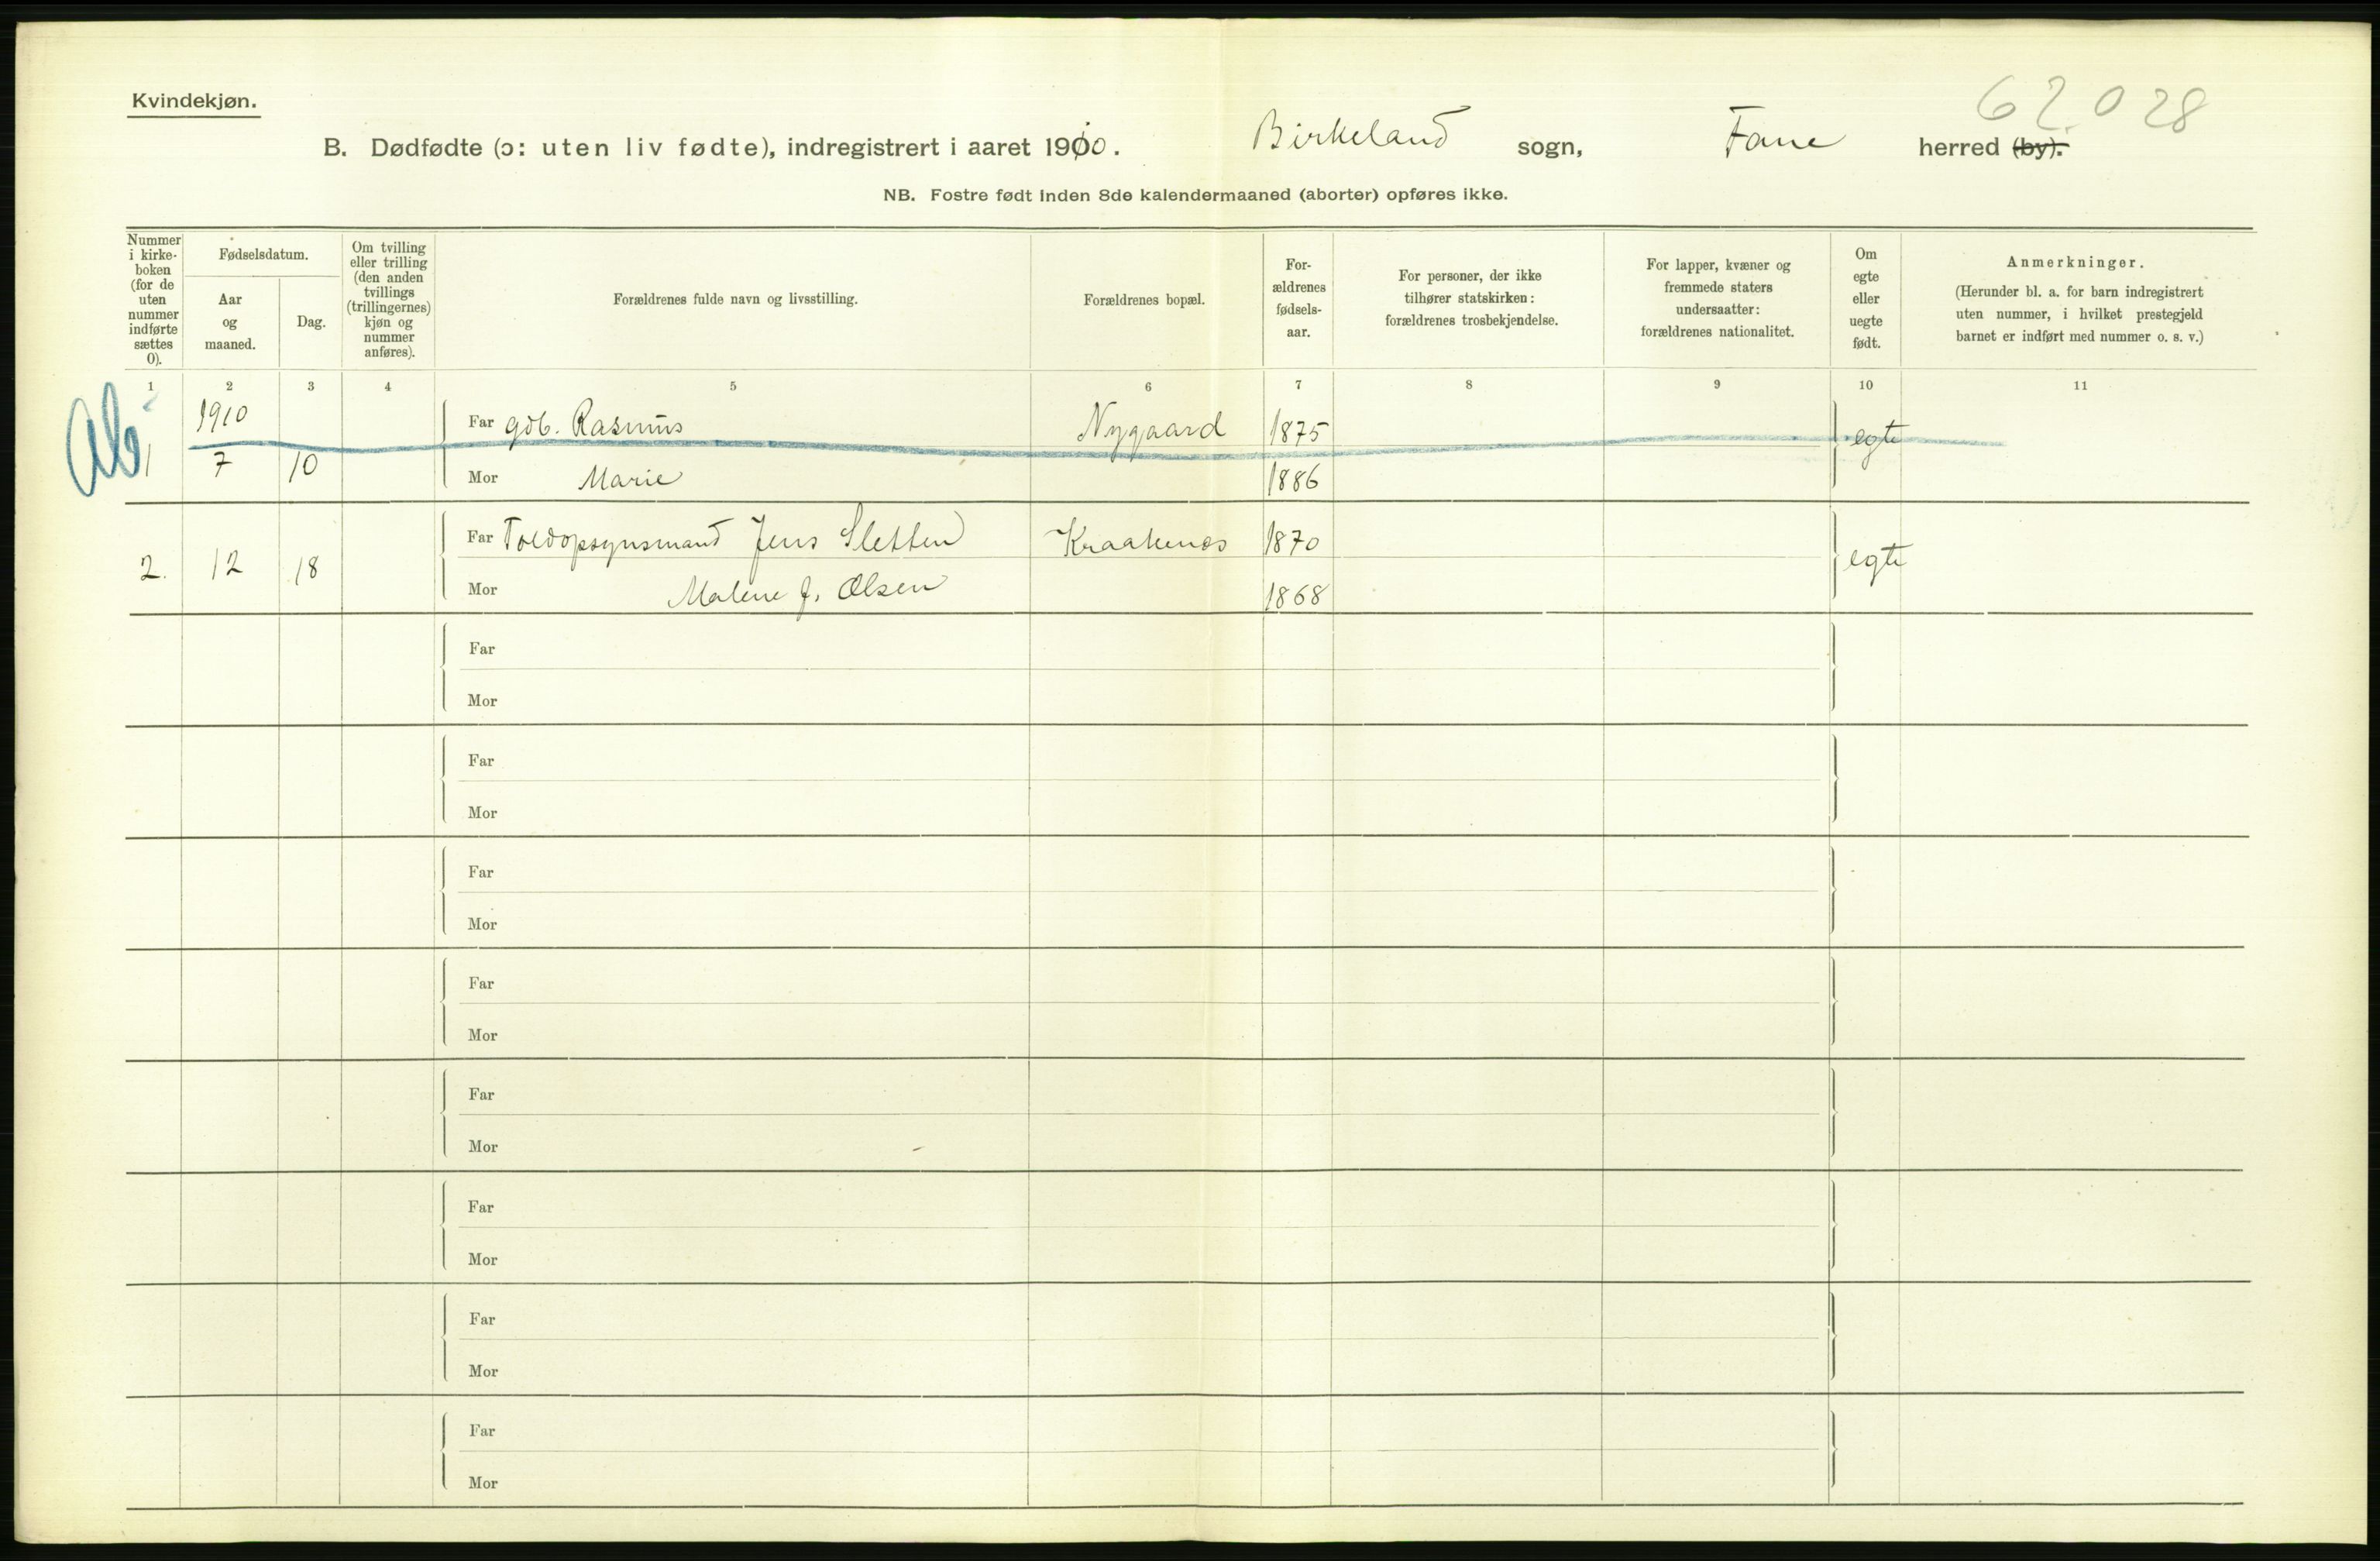 Kvindekjøn.
62.028
B. Dødfødte (ɔ: uten liv fødte), indregistrert i aaret 1910. Birkeland sogn, Fane herred (by).
NB. Fostre født inden 8de kalendermaaned (aborter) opføres ikke.
Nummer i kirke-boken (for de uten nummer indførte sættes 0).
Fødselsdatum.
Aar og maaned.
Dag.
Om tvilling eller trilling (den anden tvillings (trillingernes) kjøn og nummer anføres).
Forældrenes fulde navn og livsstilling.
Forældrenes bopæl.
For-ældrenes fødsels-aar.
For personer, der ikke tilhører statskirken: forældrenes trosbekjendelse.
For lapper, kvæner og fremmede staters undersaatter: forældrenes nationalitet.
Om egte eller uegte født.
Anmerkninger.
(Herunder bl. a. for barn indregistrert uten nummer, i hvilket prestegjeld barnet er indført med nummer o. s. v.)
1 2 3 4 5 6 7 8 9 10 11
Ab.
1910
Far gdb. Rasmus Nygaard 1875 egte
1 7 10 Mor Marie 1886
Far Toldopsynsmand Jens Sletten Kraakenes 1870
2. 12 18 egte
Mor Malene J. Olsen 1868
Far
Mor
Far
Mor
Far
Mor
Far
Mor
Far
Mor
Far
Mor
Far
Mor
Far
Mor